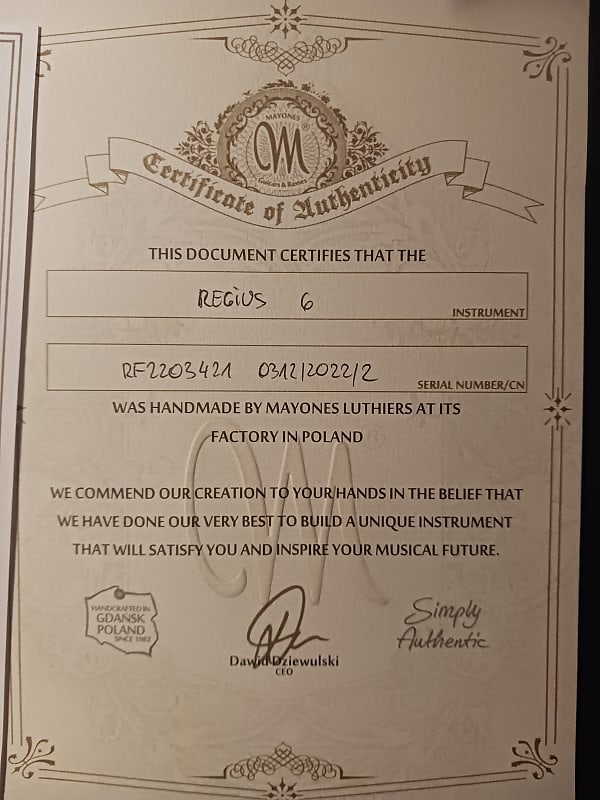 MAYONES
M®
Guitars & Basses
Certificate of Authenticity
THIS DOCUMENT CERTIFIES THAT THE
REGIUS 6
INSTRUMENT
RF2203421 0312/2022/2
SERIAL NUMBER/CN
WAS HANDMADE BY MAYONES LUTHIERS AT ITS
FACTORY IN POLAND
WE COMMEND OUR CREATION TO YOUR HANDS IN THE BELIEF THAT
WE HAVE DONE OUR VERY BEST TO BUILD A UNIQUE INSTRUMENT
THAT WILL SATISFY YOU AND INSPIRE YOUR MUSICAL FUTURE.
HANDCRAFTED IN
GDAŃSK
POLAND
SINCE 1982
Dawid Dziewulski
CEO
Simply
Authentic